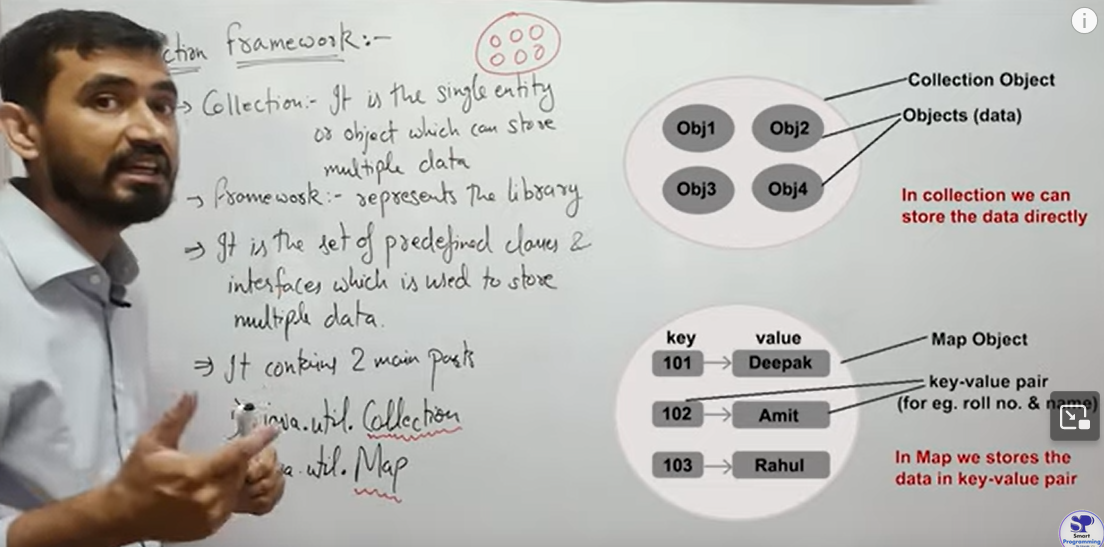 ction framework:-
→ Collection:- It is the single entity
or object which can store
multiple data
→ framework:- represents the library
⇒ It is the set of predefined classes &
interfaces which is used to store
multiple data.
⇒ It contains 2 main parts
java.util.Collection
a.util.Map
Collection Object
Obj1 Obj2
Objects (data)
Obj3 Obj4
In collection we can
store the data directly
key value
101 → Deepak
Map Object
key-value pair
(for eg. roll no. & name)
102 → Amit
103 → Rahul
In Map we stores the
data in key-value pair
SP
Smart
Programming